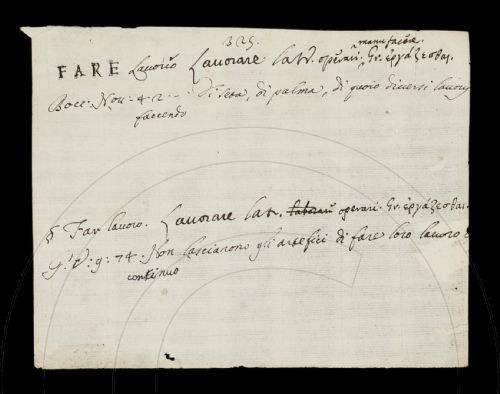 325.
manu facere.
FARE Lavorio Lavorare lat. operari. Gr. ἐργάζεσθαι.
Bocc: Nov: 42 - - Di seta, di palma, di quoio diversi lavorij
faccendo
§ Far lavoro. Lavorare lat. laborare operari. Gr. ἐργάζεσθαι.
G: V: 9: 74. Non lasciarono gli artefici di fare loro lavoro e
continuo